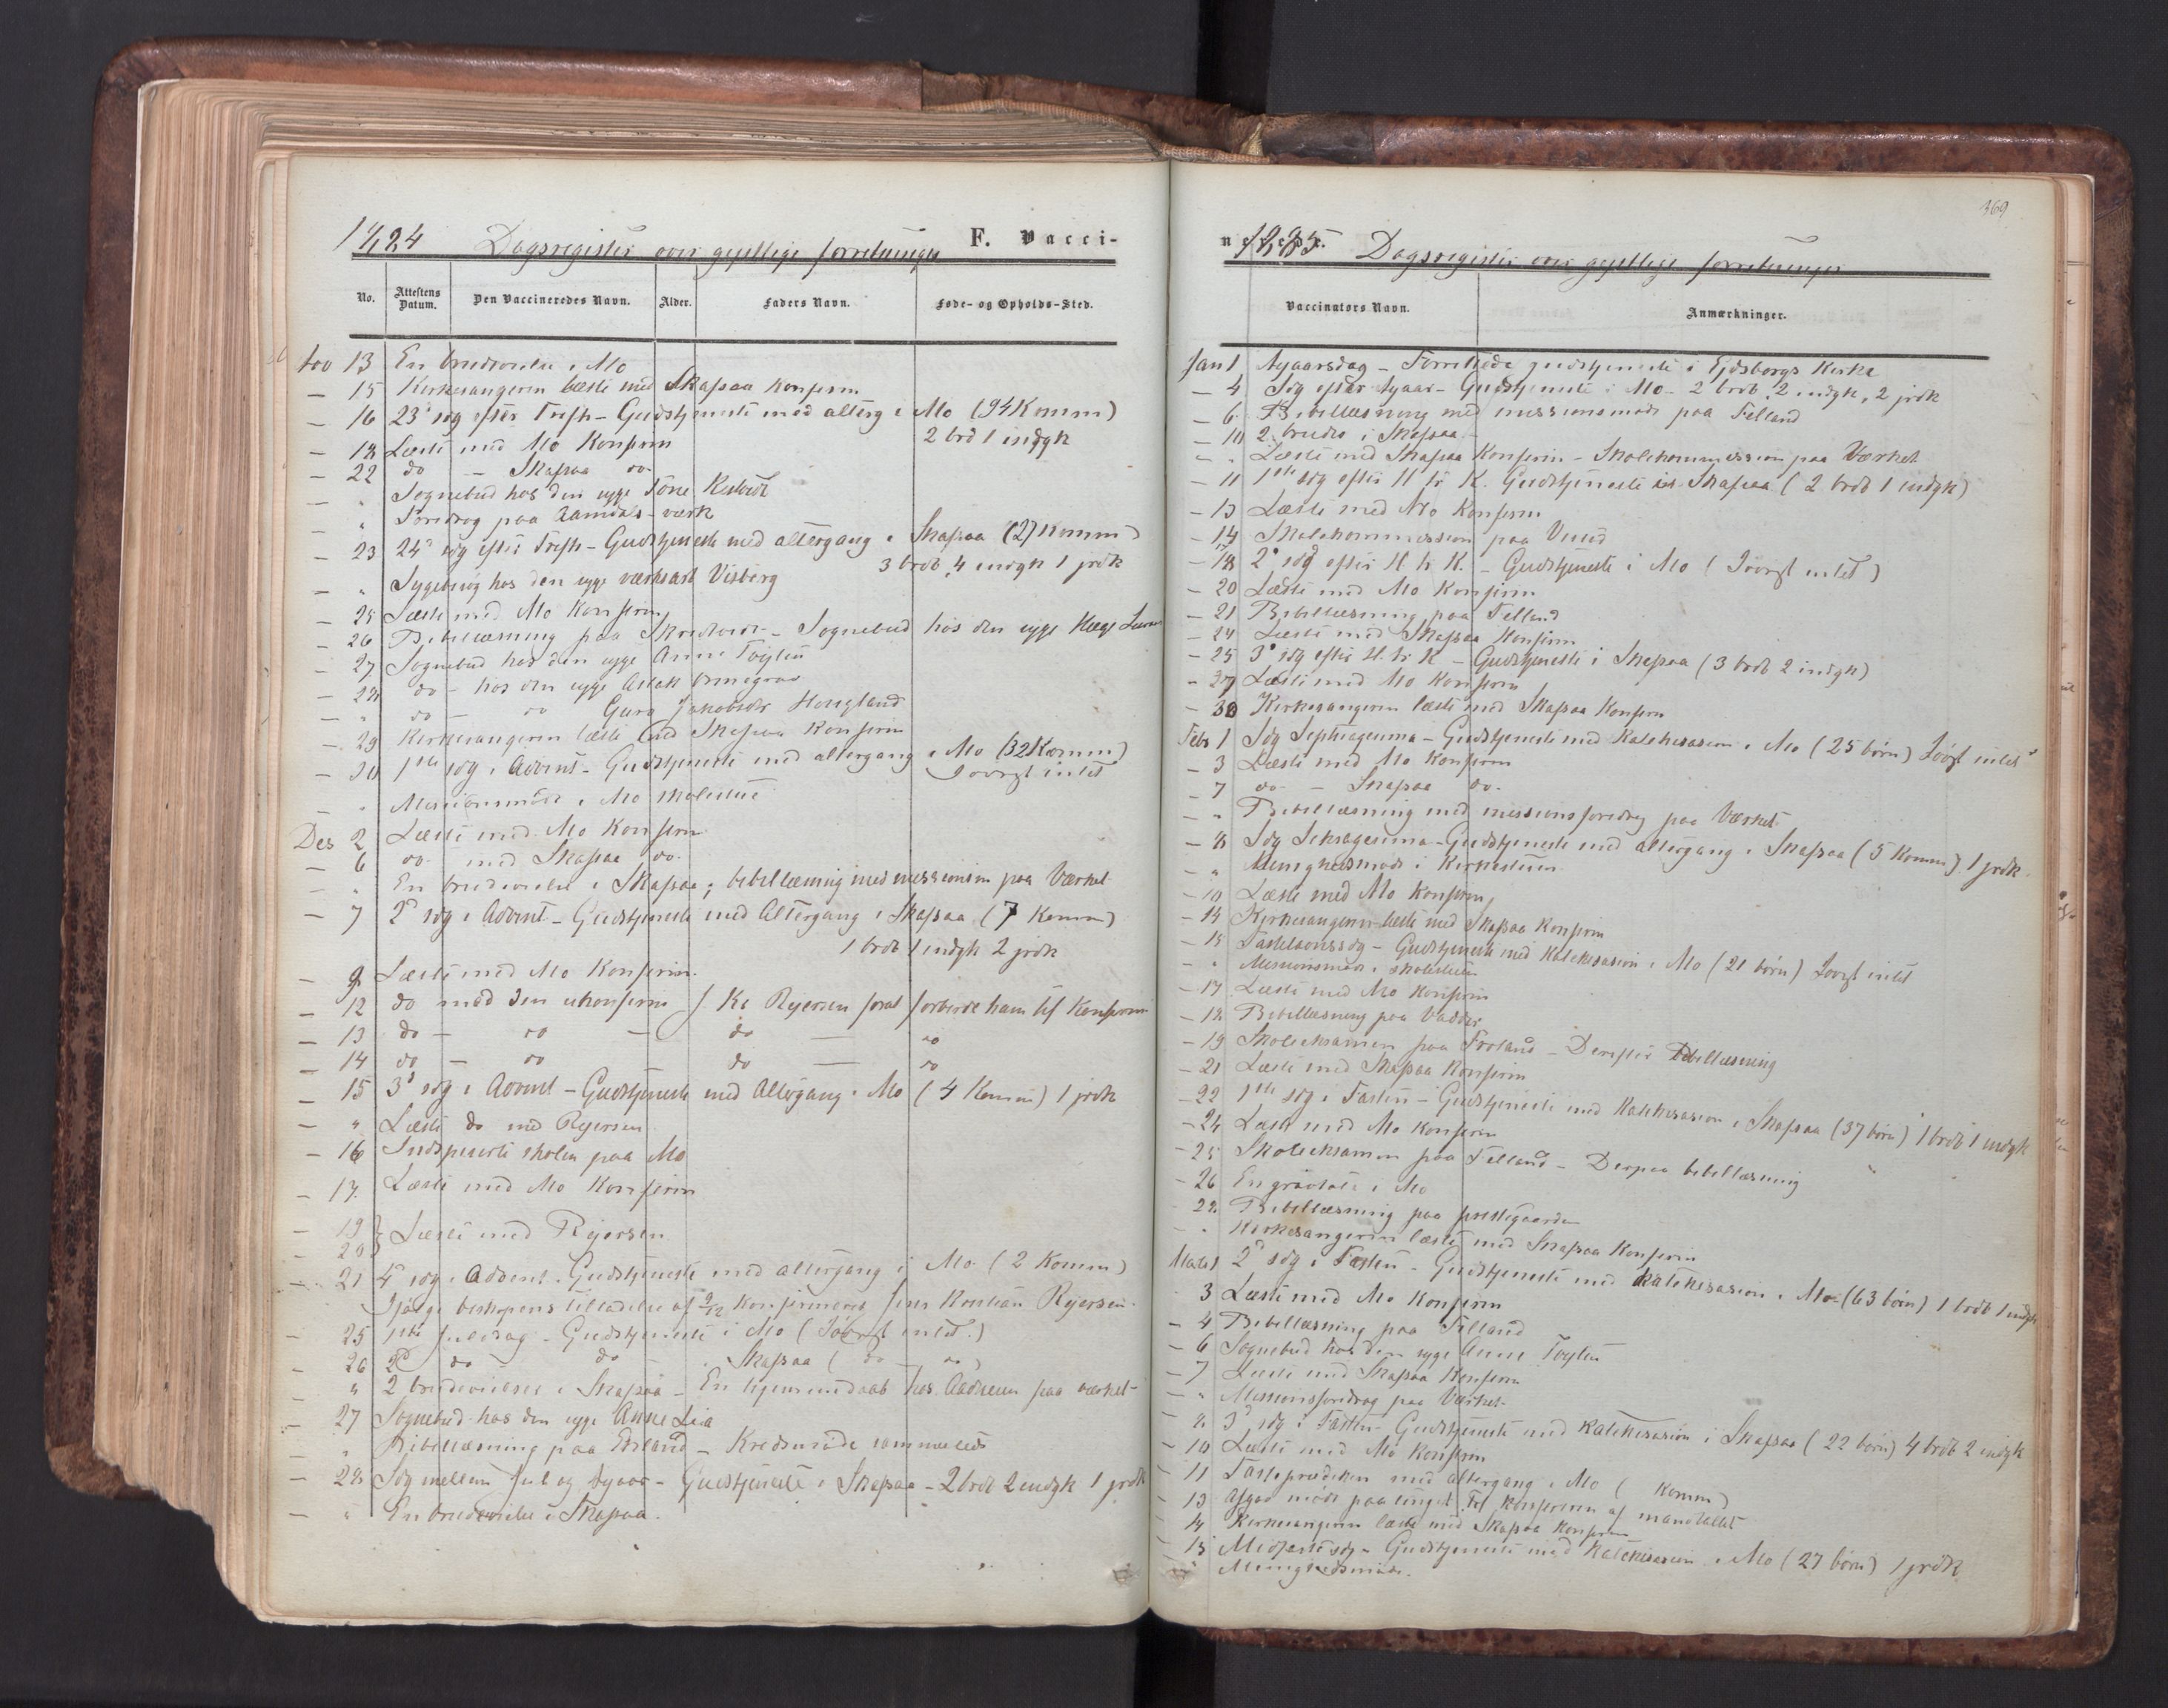 1884 Dagsregister over gejstlige forretninger F. Vacci-
No. Attestens Datum. Den Vaccineredes Navn. Alder. Faders Navn. Føde- og Opholds-Sted.
13 En brudevielse i Mo
— 15 Kirkesangeren læste med Skafsaa Konfirm
— 16 23d søg efter Trefh - Gudstjeneste med alterg i Mo (94 Komm)
2 brdb 1 indgk
— 18 Læste med Mo Konfirm
— 22 do — Skafsaa do
— " Sognebud hos den syge Tone
" Foredrag paa Aamdals-værk
— 23 24d søg efter Trefh - Gudstjeneste med altergang i Skafsaa (27 Komm)
3 brdb 4 indgk 1 jrdk
— " Sygebesøg hos den syge værksarb Visberg
— 25 Læste med Mo Konfirm
— 26 Bibellæsning paa - Sognebud hos den syge Hæge
— 27 Sognebud hos den syge AnneFøylen
— 28 do - hos den syge Aslak Ormegrav
— " do — do Guro Jakobsdr Hougland
— 29 Kirkesangeren læste med Skafsaa Konfirm
— 30 1ste søg i Advent - Gudstjeneste med altergang i Mo (32 Komm)
Iøvrgt intet
— " Missionsmøde i Mo skolestue
Des 2 Læste med Mo Konfirm
— 6 do med Skafsaa do
— " En brudevielse i Skafsaa; bibellæsning med missionsm paa Værket
— 7 2d søg i Advent - Gudstjeneste med Altergang i Skafsaa (7 Komm)
1 brdb 1 indgk 2 jrdk
— 9 Læste med Mo Konfirm
— 12 do med den ukonfirm J. Kr Rejersen foral forberede ham til Konfirm
— 13 do — do — do — do
— 14 do — do do — do
— 15 3d søg i Advent - Gudstjeneste med Altergang i Mo (4 Komm) 1 jrdk
— " Læste do med Rejersen
— 16 Indspiserte skolen paa Mo
— 17. Læste med Mo Konfirm
— 19
— 20 } Læste med Rejersen
— 21 4d søg i Advent. Gudstjeneste med altergang i Mo (2 Komm)
Ifølge biskopens tilladelse af 9/12 Konfirmeres Jens Kristian Rejersen.
— 25 1ste Juledag - Gudstjeneste i Mo (Iøvrgt intet.)
— 26 2d do do — Skafsaa (do — do)
" 2 brudevielser i Skafsaa - En hjemmedaab hos Aadneson paa værket
— 27 Sognebud hos den syge Anne Lia
" Bibellæsning paa - Kredsmøde sammesteds
— 28 Søg mellem Jul og Nyaar - Gudstjeneste i Skafsaa - 2 brdb 2 indgk 1 jrdk
— " En brudevielse i Skafsaa.
369
neredе. 1885 Dagsregister over gejstlige forretninger
Vaccinators Navn. Anmærkninger.
Jan 1 Nyaarsdag - Forrettede gudstjeneste i Ejdsborgs Kirke
— 4 Søg efter Nyaar - Gudstjeneste i Mo - 2 brdb, 2 indgk, 2 jrdk
— 6. Bibellæsning med missionsmøde paa Felland
— 10 2 brudev i Skafsaa
— " Læste med Skafsaa Konfirm - Skolekommission paa Værket
— 11 1ste søg efter H tr K. Gudstjeneste i Skafsaa (2 brdb 1 indgk)
— 13 Læste med Mo Konfirm
— 14 Skolekommission paa
— 18 2d søg efter H tr K. - Gudstjeneste i Mo (Iøvrgt intet)
— 20 Læste med Mo Konfirm
— 21 Bibellæsning paa Felland
— 24 Læste med Skafsaa Konfirm
— 25 3d søg efter H. tr K - Gudstjeneste i Skafsaa (3 brdb 2 indgk)
— 27 Læste med Mo Konfirm
— 30 Kirkesangeren læste med Skafsaa Konfirm
Febr 1 Søg Septuagesima - Gudstjeneste med Katekisasion i Mo (25 børn) Iøvrgt intet
— 3 Læste med Mo Konfirm
— 7 do — Skafsaa do.
— " Bibellæsning med missionsforedrag paa Værket
— 8 Søg Seksagesima - Gudstjeneste med altergang i Skafsaa (5 Komm) 1 jrdk.
— " Menighedsmøde i Kirkestuen
— 10 Læste med Mo Konfirm
— 14 Kirkesangeren læste med Skafsaa Konfirm
— 15 Fastelavnssøg - Gudstjeneste med Katekisasion i Mo (21 børn) Iøvrgt intet
— " Missionsmøde i skolestuen
— 17 Læste med Mo Konfirm
— 18. Bibellæsning paa Vadder
— 19 Skoleeksamen paa - Derefter bibellæsning
— 21 Læste med Skafsaa Konfirm
— 22 1ste søg i Fasten - Gudstjeneste med Katekisasion i Skafsaa (37 børn) 1 brdb 1 indgk
— 24 Læste med Mo Konfirm
— 25 Skoleeksamen paa Felland - Derpaa bibellæsning
— 26 En gravtale i Mo
28. Bibellæsning paa prestegaarden
— " Kirkesangeren læste med Skafsaa Konfirm
Marts 1 2d søg i Fasten - Gudstjeneste med Katekisasion i Mo (63 børn) 1 brdb 1 indgk
3 Læste med Mo Konfirm
— 4 Bibellæsning paa Felland
— 6 Sognebud hos den syge Anne Føylen
— 7 Læste med Skafsaa Konfirm
— " Missionsforedrag paa Værket
— 8. 3d søg i Fasten - Gudstjeneste med Katekisasion i Skafsaa (22 børn) 4 brdb 2 indgk
— 10 Læste med Mo Konfirm
— 11 Fasteprædiken med altergang i Mo ( Komm)
— 13 Afgav møde paa tinget til Konfereren af mandtallet
— 14 Kirkesangeren læste med Skafsaa Konfirm
— 15 Midfastesøg - Gudstjeneste med Katekisasion i Mo (27 børn) 1 jrdk
" Menighedsmøde.